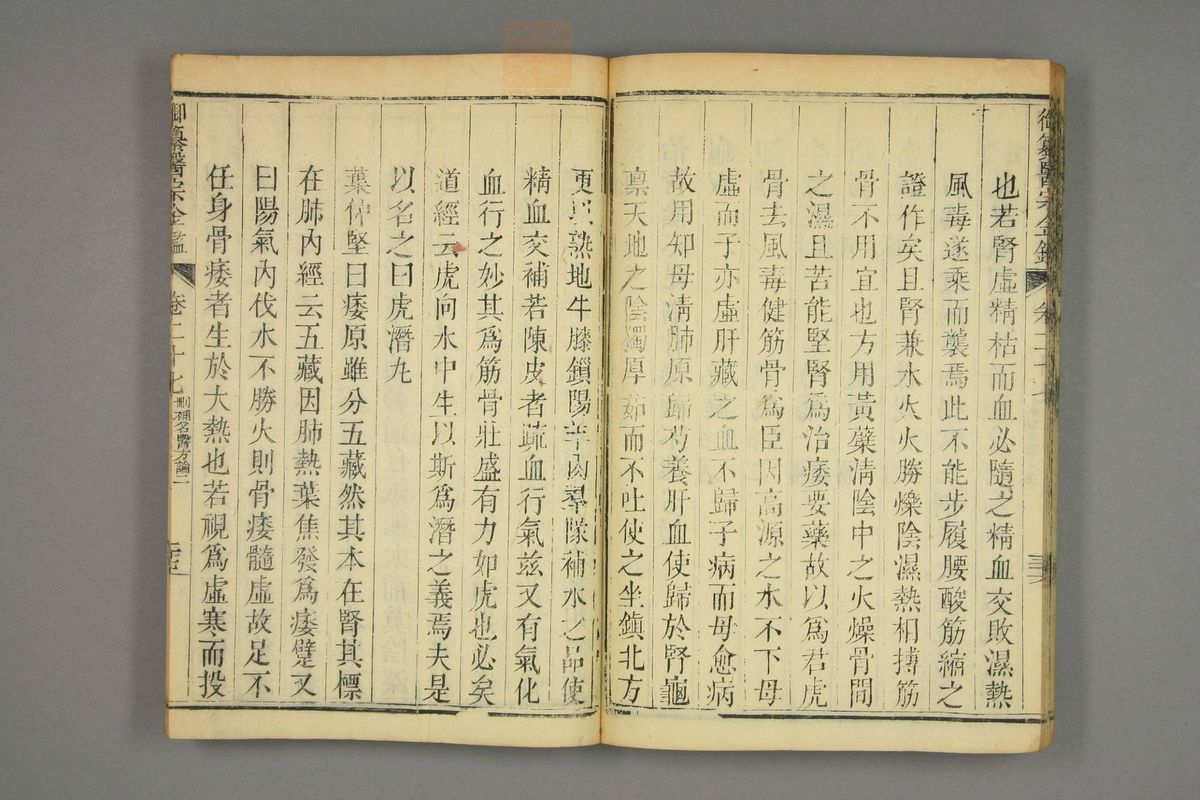 御纂醫宗金鑑
卷二十七
也若腎虛精枯而血必隨之精血交敗濕熱
風毒遂乘而襲焉此不能步履腰酸筋縮之
證作矣且腎兼水火火勝爍陰濕熱相摶筋
骨不用宜也方用黃蘗淸陰中之火燥骨間
之濕且苦能堅腎爲治痿要藥故以爲君虎
骨去風毒健筋骨爲臣因高源之水不下母
虛而子亦虛肝藏之血不歸子病而母愈病
故用知母淸肺原歸芍養肝血使歸於腎龜
禀天地之陰獨厚茹而不吐使之坐鎭北方
更以熟地牛膝鎖陽羊肉羣隊補水之品使
精血交補若陳皮者疏血行氣兹又有氣化
血行之妙其爲筋骨壯盛有力如虎也必矣
道經云虎向水中生以斯爲潛之義焉夫是
以名之曰虎潛丸
葉仲堅曰痿原雖分五藏然其本在腎其標
在肺內經云五藏因肺熱葉焦發爲痿躄又
曰陽氣內伐水不勝火則骨痿髓虛故足不
任身骨痿者生於大熱也若視爲虛寒而投
御纂醫宗金鑑
卷二十七
刪補名醫方論二